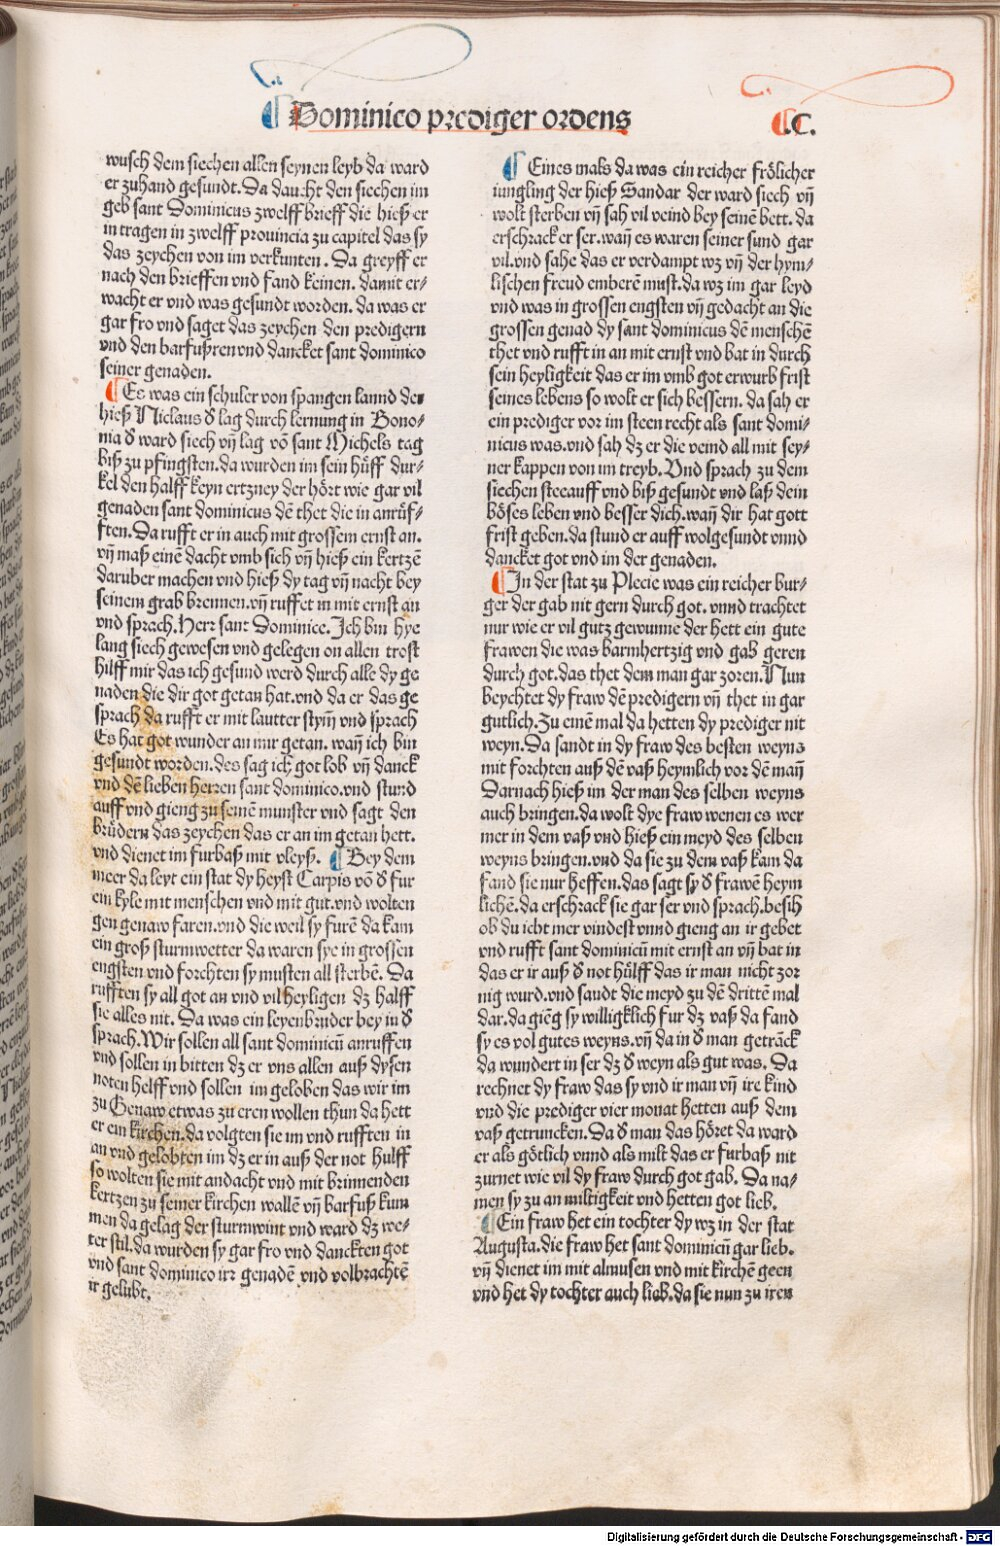 Dominico prediger ordens
.C.
wusch dem siechen allen seynen leyb da ward
er zuhand gesundt. Da daucht den siechen im
geb sant Dominicus zwelff brieff die hieß er
in tragen in zwelff prouincia zu capitel das sy
das zeychen von im verkunten. Da greyff er
nach den brieffen vnd fand keinen. damit er⸗
wacht er vnd was gesundt worden. da was er
gar fro vnd saget das zeychen den predigern
vnd den barfußren vnd dancket sant dominico
seiner genaden.
Es was ein schuler von spangen lannd der
hieß Niclaus d̕ lag durch lernung in Bono⸗
nia d̕ ward siech vn̄ lag vō sant Michels tag
biß zu pfingsten. da wurden im sein hüff dur⸗
kel den halff keyn ertzney der hört wie gar vil
genaden sant dominicus dē thet die in anrüf⸗
ften. Da rufft er in auch mit grossem ernst an.
vn̄ maß einē dacht vmb sich vn̄ hieß ein kertzē
daruber machen vnd hieß dy tag vn̄ nacht bey
seinem grab brennen. vn̄ ruffet in mit ernst an
vnd sprach. Herr sant Dominice. Ich bin hye
lang siech gewesen vnd gelegen on allen trost
hilff mir das ich gesund werd durch alle dy ge
naden die dir got getan hat. vnd da er das ge
sprach da rufft er mit lautter stym̄ vnd sprach
Es hat got wunder an mir getan. wan̄ ich bin
gesundt worden. des sag ich got lob vn̄ danck
vnd dē lieben herren sant dominico. vnd stund
auff vnd gieng zu seinē munster vnd sagt den
brüdern das zeychen das er an im getan hett.
vnd dienet im furbaß mit vleyß. Bey dem
meer da leyt ein stat dy heyst Carpis vō d̕ fur
ein kyle mit menschen vnd mit gut. vnd wolten
gen genaw faren. vnd die weil sy furē da kam
ein groß sturmwetter da waren sye in grossen
engsten vnd forchten sy musten all sterbē. Da
rufften sy all got an vnd vil heyligen dz halff
sie alles nit. Da was ein leyenbruder bey in d̕
sprach. Wir sollen all sant dominicū anruffen
vnd sollen in bitten dz er vns allen auß dysen
noten helff vnd sollen im geloben das wir im
zu Genaw etwas zu eren wollen thun da hett
er ein kirchen. da volgten sie im vnd rufften in
an vnd gelobten im dz er in auß der not hulff
so wolten sie mit andacht vnd mit brinnenden
kertzen zu seiner kirchen wallē vn̄ barfuß kum
men da gelag der sturmwint vnd ward dz we⸗
ter stil. da wurden sy gar fro vnd danckten got
vnd sant dominico irr genadē vnd volbrachtē
ir gelubt.
Eines mals da was ein reicher frölicher
iungling der hieß Sandar der ward siech vn̄
wolt sterben vn̄ sah vil veind bey seinē bett. da
erschrack er ser. wan̄ es waren seiner sund gar
vil. vnd sahe das er verdampt wz vn̄ der hym⸗
lischen freud emberē must. da wz im gar leyd
vnd was in grossen engsten vn̄ gedacht an die
grossen genad dy sant dominicus dē menschē
thet vnd rufft in an mit ernst vnd bat in durch
sein heyligkeit das er im vmb got erwurb frist
seines lebens so wolt er sich bessern. da sah er
ein prediger vor im steen recht als sant domi⸗
nicus was. vnd sah dz er die veind all mit sey⸗
ner kappen von im treyb. Vnd sprach zu dem
siechen stee auff vnd biß gesundt vnd laß dein
böses leben vnd besser dich. wan̄ dir hat gott
frist geben. da stund er auff wolgesundt vnnd
dancket got vnd im der genaden.
In der stat zu Plecie was ein reicher bur⸗
ger der gab nit gern durch got. vnnd trachtet
nur wie er vil gutz gewunne der hett ein gute
frawen die was barmhertzig vnd gab geren
durch got. das thet dem man gar zoren. Nun
beychtet dy fraw dē predigern vn̄ thet in gar
gutlich. Zu einē mal da hetten dy prediger nit
weyn. Da sandt in dy fraw des besten weyns
mit forchten auß dē vaß heymlich vor dē man̄
Darnach hieß im der man des selben weyns
auch bringen. da wolt dye fraw wenen es wer
mer in dem vaß vnd hieß ein meyd des selben
weyns bringen. vnd da sie zu dem vaß kam da
fand sie nur heffen. das sagt sy d̕ frawē heym
lichē. da erschrack sie gar ser vnd sprach. besih
ob du icht mer vindest vnnd gieng an ir gebet
vnd rufft sant dominicū mit ernst an vn̄ bat in
das er ir auß d̕ not hülff das ir man nicht zor
nig wurd. vnd sandt die meyd zu dē drittē mal
dar. da giēg sy willigklich fur dz vaß da fand
sy es vol gutes weyns. vn̄ da in d̕ man getranck
da wundert in ser dz d̕ weyn als gut was. Da
rechnet dy fraw das sy vnd ir man vn̄ ire kind
vnd die prediger vier monat hetten auß dem
vaß getruncken. Da d̕ man das höret da ward
er als götlich vnnd als milt das er furbaß nit
zurnet wie vil dy fraw durch got gab. Da na⸗
men sy zu an miltigkeit vnd hetten got lieb.
Ein fraw het ein tochter dy wz in der stat
Augusta. die fraw het sant dominicū gar lieb.
vn̄ dienet im mit almusen vnd mit kirchē geen
vnd het dy tochter auch lieb. da sie nun zu iren
Digitalisierung gefördert durch die Deutsche Forschungsgemeinschaft - DFG